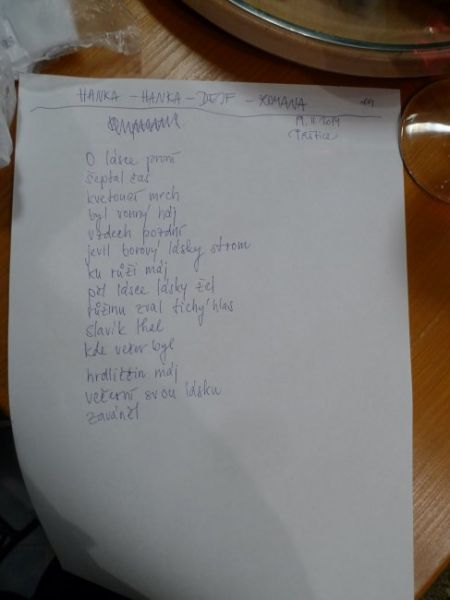 HANKA - HANKA - DEJF - ROMANA
19.11.2019
O lásce první
šeptal čas
kvetoucí mrch
byl vonný háj
vzdech pozdní
jevil borový lásky strom
ku růži máj
pěl lásce lásky žel
růžinu zval tichý hlas
slavík lhal
kde večer byl
hrdliččin máj
večerní svou lásku
zaváněl